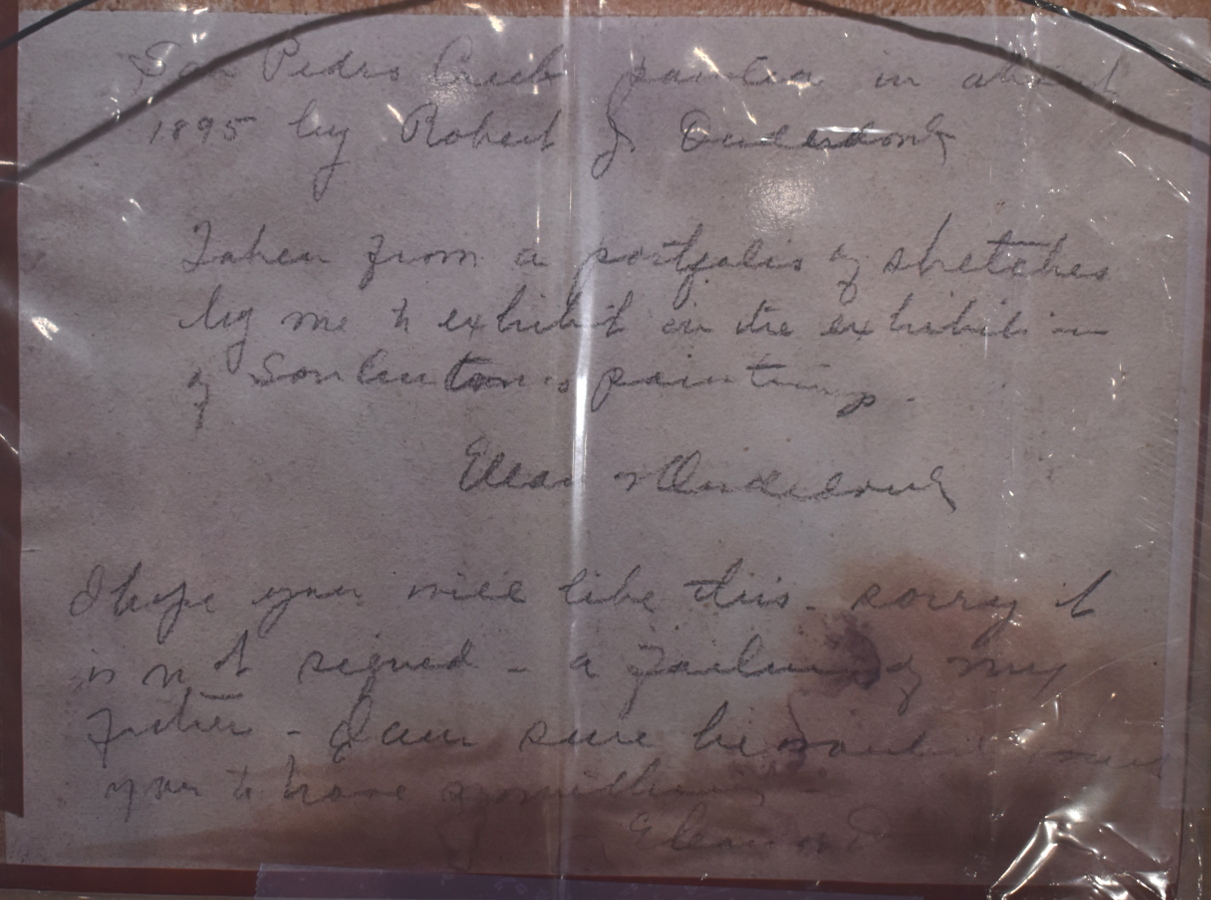 San Pedro Creek painted in about
1895 by Robert J. Onderdonk
Taken from a portfolio of sketches
by me to exhibit in the exhibition
of San Antonio paintings.
Eleanor Onderdonk
I hope you will like this. sorry it
is not signed - a failing of my
father - I am sure he would
you to have something
Eleanor O